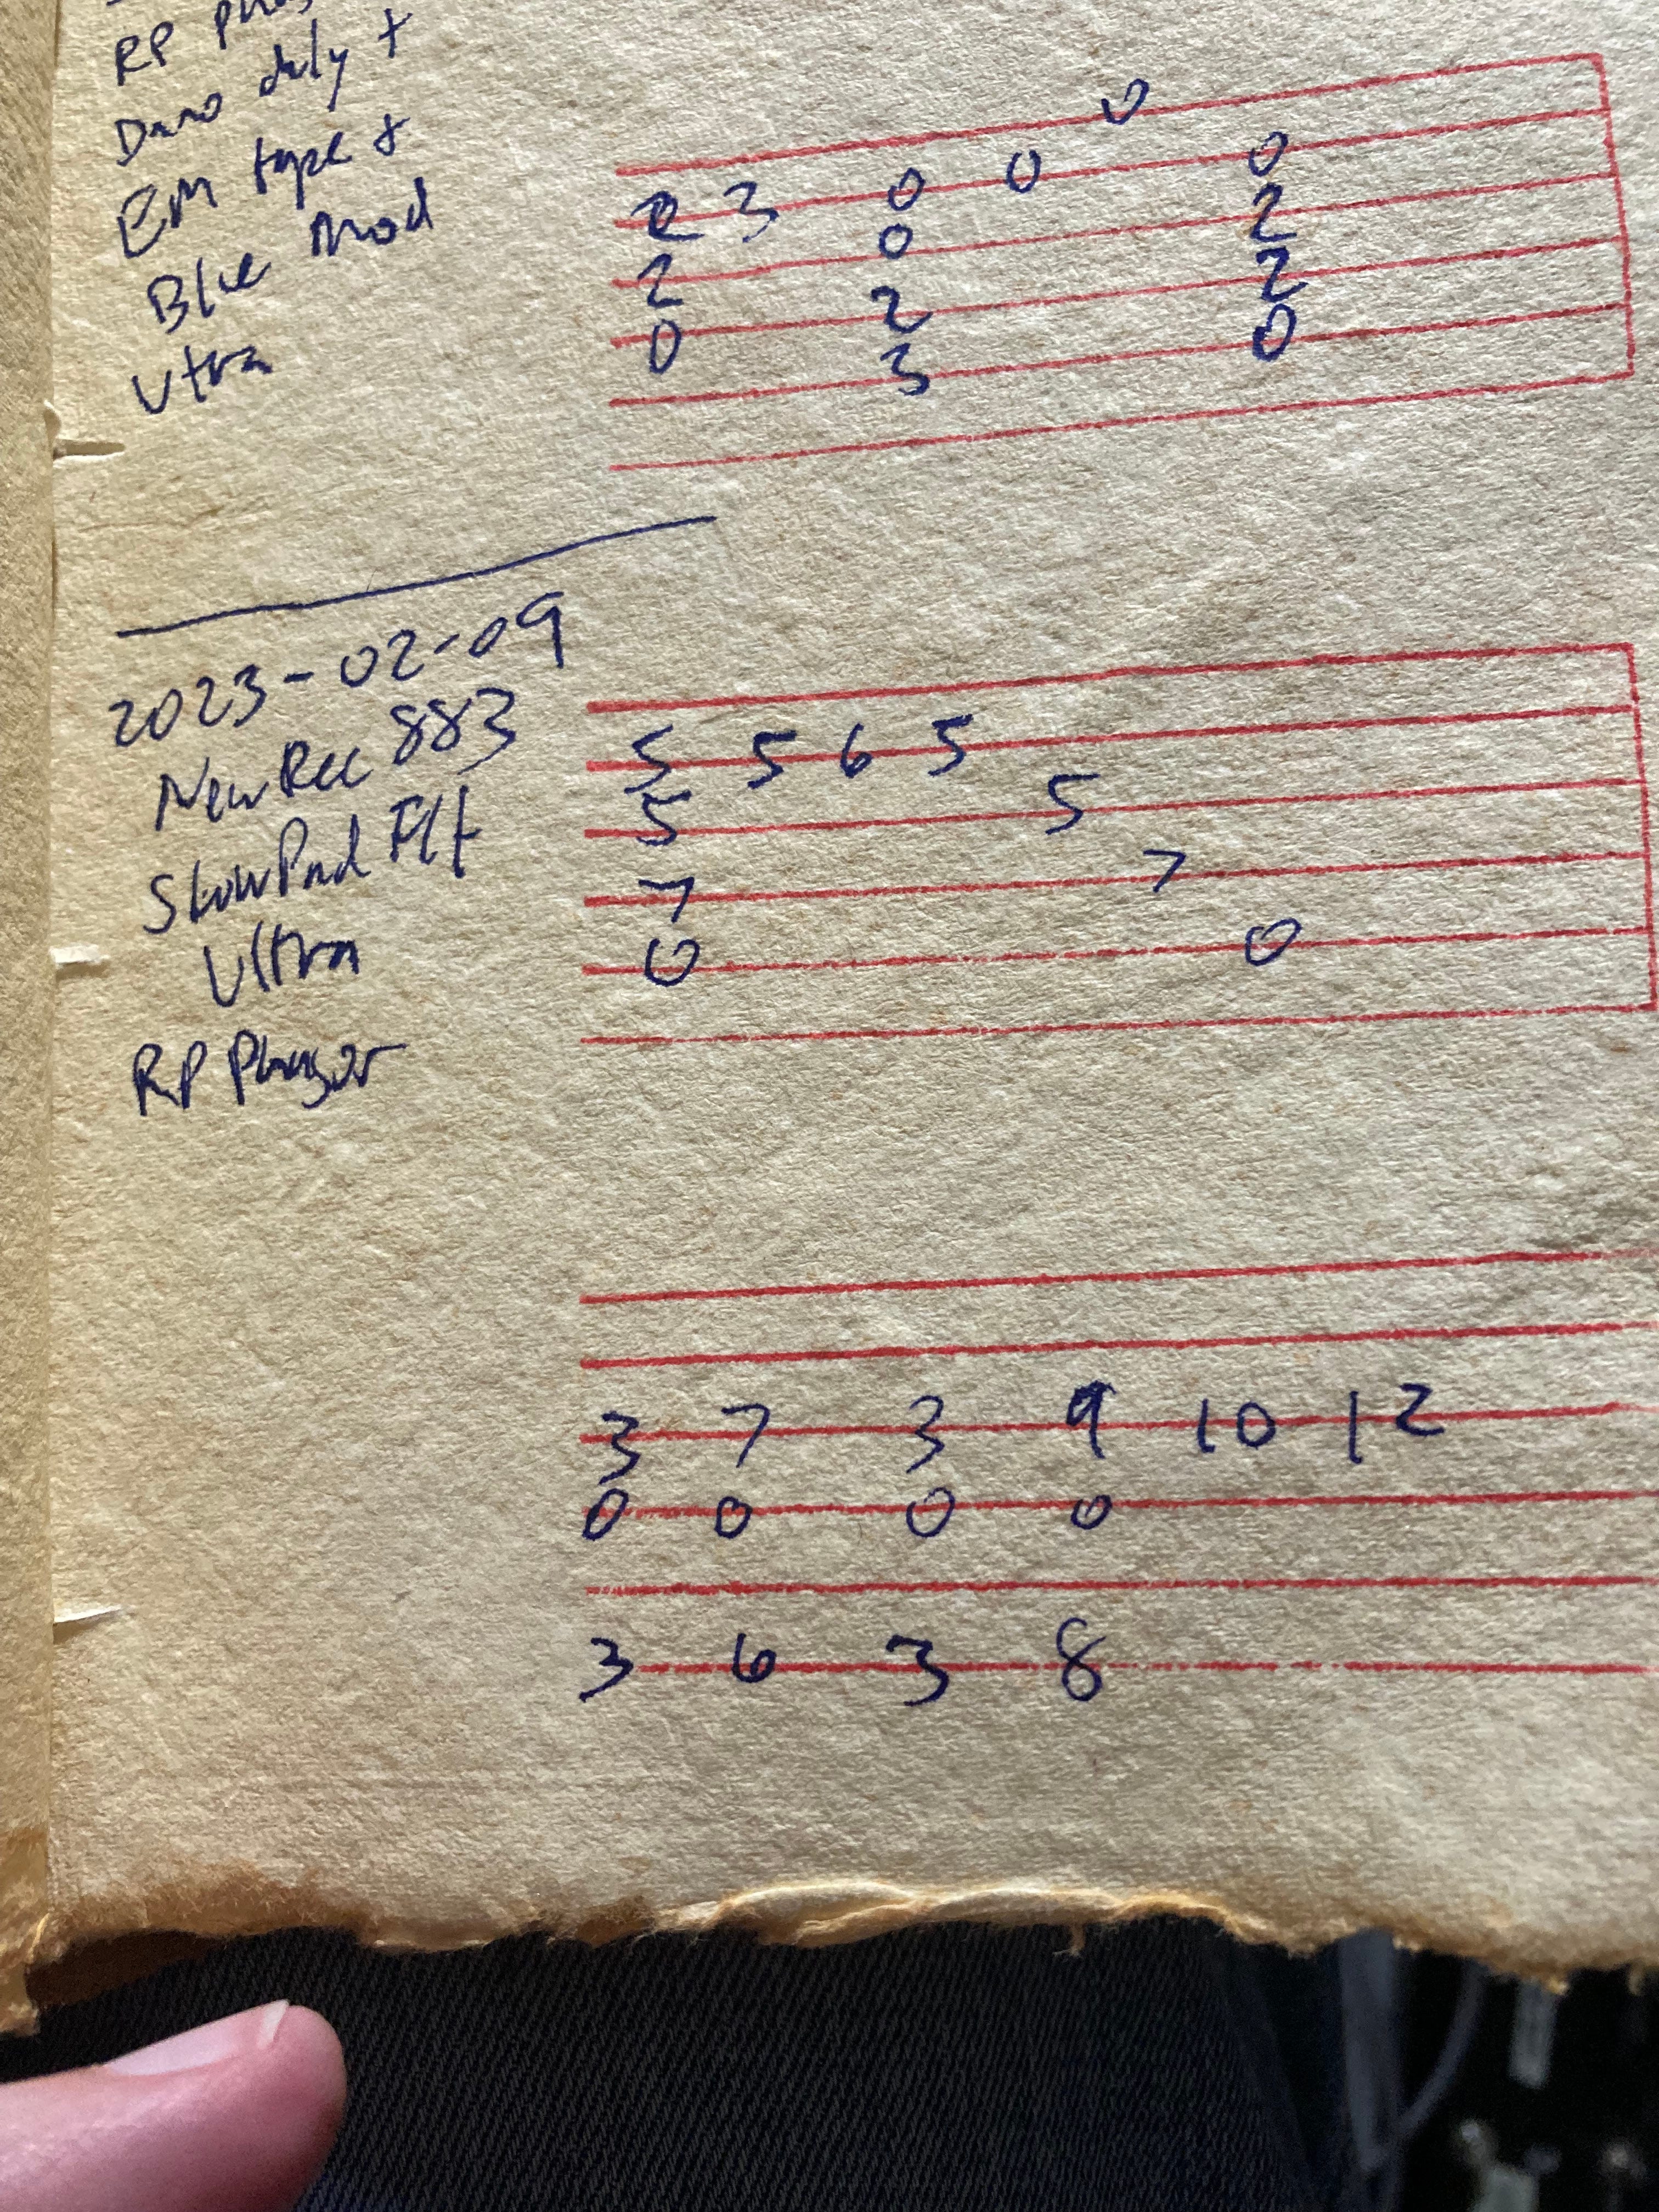 RP
Dano dely +
EM tape +
Blue Mod
Utra
0
2 3 0 0 0
2 0 2
0 2 2
3 0
2023-02-09
NewRec 883
SlowPad Flt
Ultra
RP Phasor
5 5 6 5
5 5
7 7
0 0
3 7 3 9 10 12
0 0 0 0
3 6 3 8